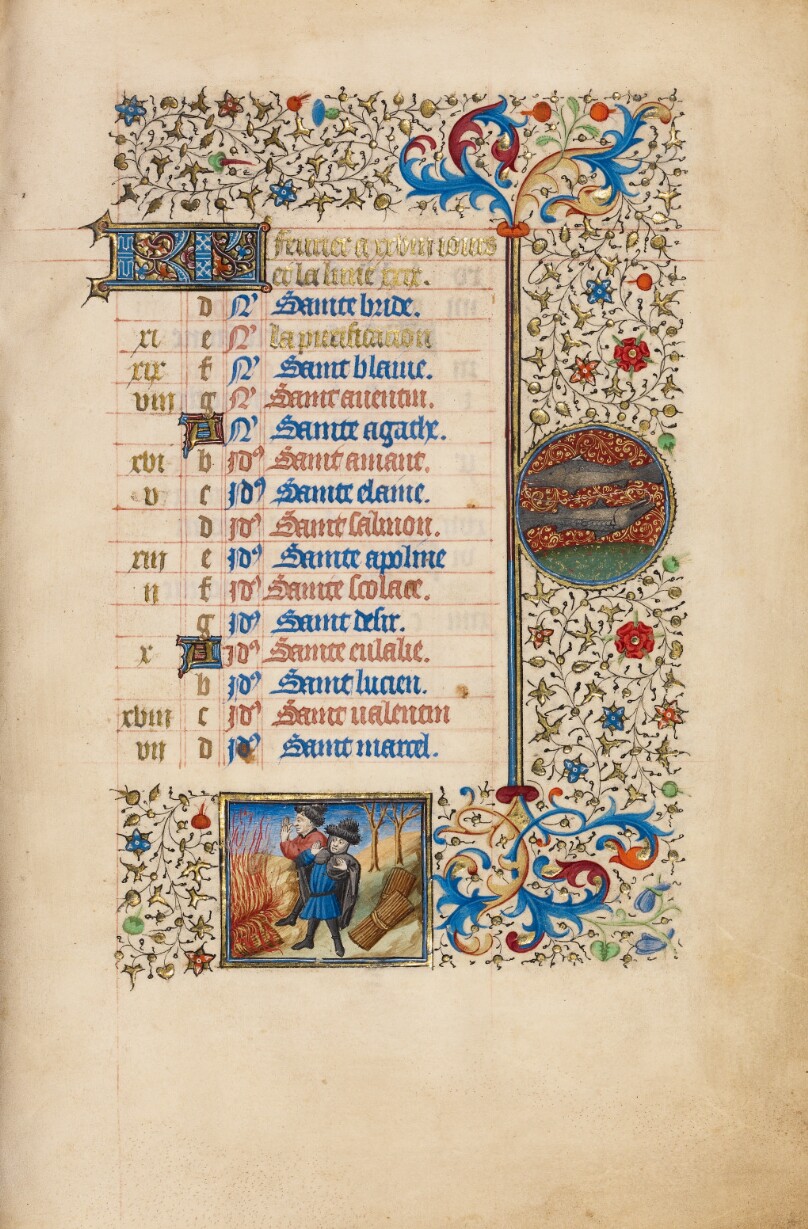 KL feurier a xxviii iours
et la lune xxix.
d N' Sainte bride.
xi e N' la purification
xix f N' Saint blaiue.
viii g N' Saint auentin.
A N' Sainte agathe.
xvi b id' Saint amant.
v c id' Sainte elaine.
d id' Saint salmon.
xiii e id' Sainte apoline
ii f id' Sainte scolace.
g id' Saint desir.
x A id' Sainte eulalie.
b id' Saint lucien.
xviii c id' Saint ualentin
vii d id' Saint marcel.